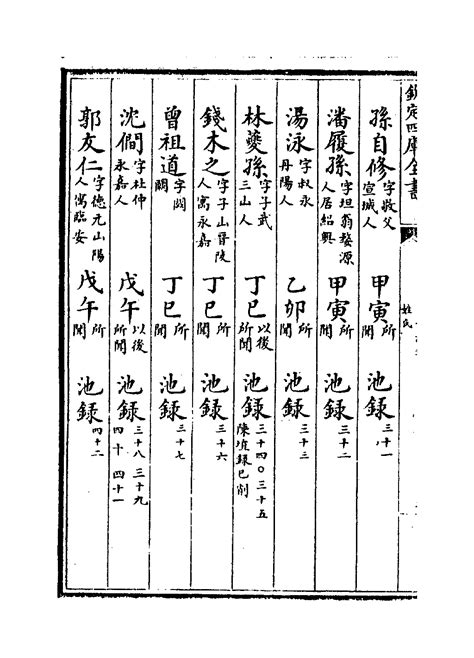 欽定四庫全書
姓氏
孫自修字敬父宣城人 甲寅所聞 池錄三十一
潘履孫字坦翁婺源人居紹興 甲寅所聞 池錄三十二
湯泳字叔永丹陽人 乙卯所聞 池錄三十三
林夔孫字子武三山人 丁巳以後所聞 池錄三十四○三十五陳埴錄已削
錢木之字子山晉陵人寓永嘉 丁巳所聞 池錄三十六
曾祖道字闕闕 丁巳所聞 池錄三十七
沈僴字杜仲永嘉人 戊午以後所聞 池錄三十八三十九四十四十一
郭友仁字德元山陽人寓臨安 戊午所聞 池錄四十二